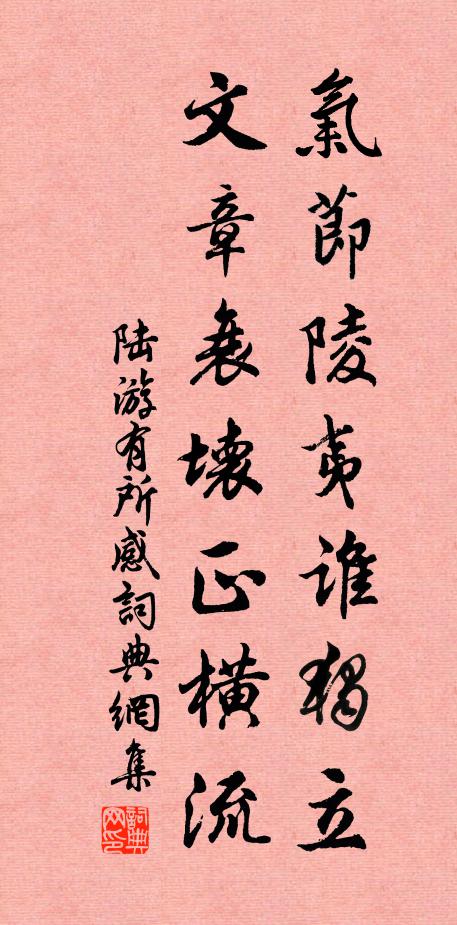 氣節陵夷誰獨立
文章衰壞正橫流
陸游有所感詞典網集
詞典網印